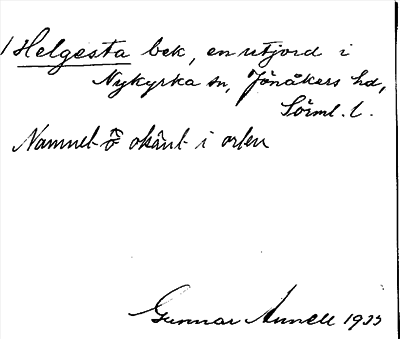 1 Helgesta bek, en utjord i
Nykyrka sn, Jönåkers hd,
Sörml. l.
Namnet okänt i orten
Gunnar 1933